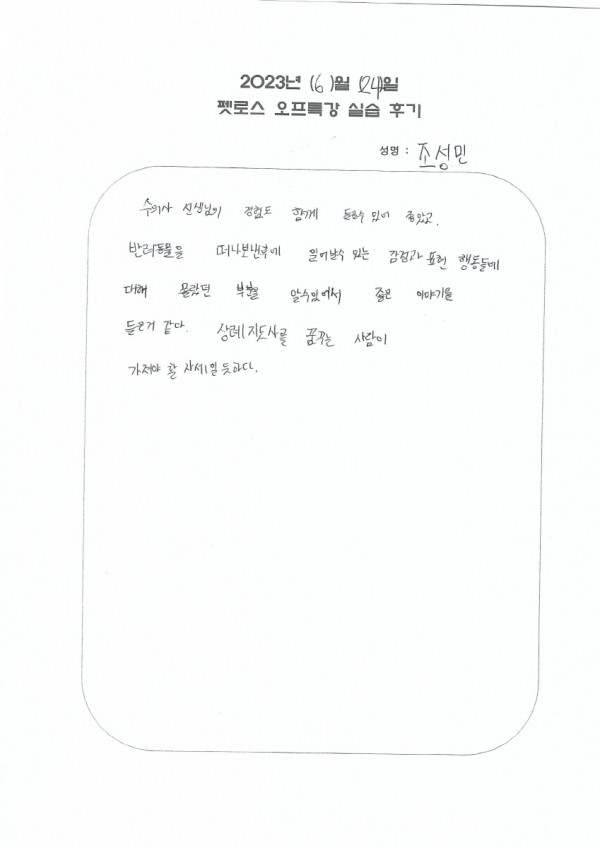 2023년 (6)월 (24)일
펫로스 오프특강 실습 후기
성명 : 조성민
수의사 선생님의 경험도 함께 들을수 있어 좋았고.
반려동물을 떠나보낸후에 일어날수 있는 감정과 표현 행동들에
대해 몰랐던 부분을 알수있어서 좋은 이야기를
들은거 같다. 상례지도사를 꿈꾸는 사람이
가져야 할 자세일 듯하다.